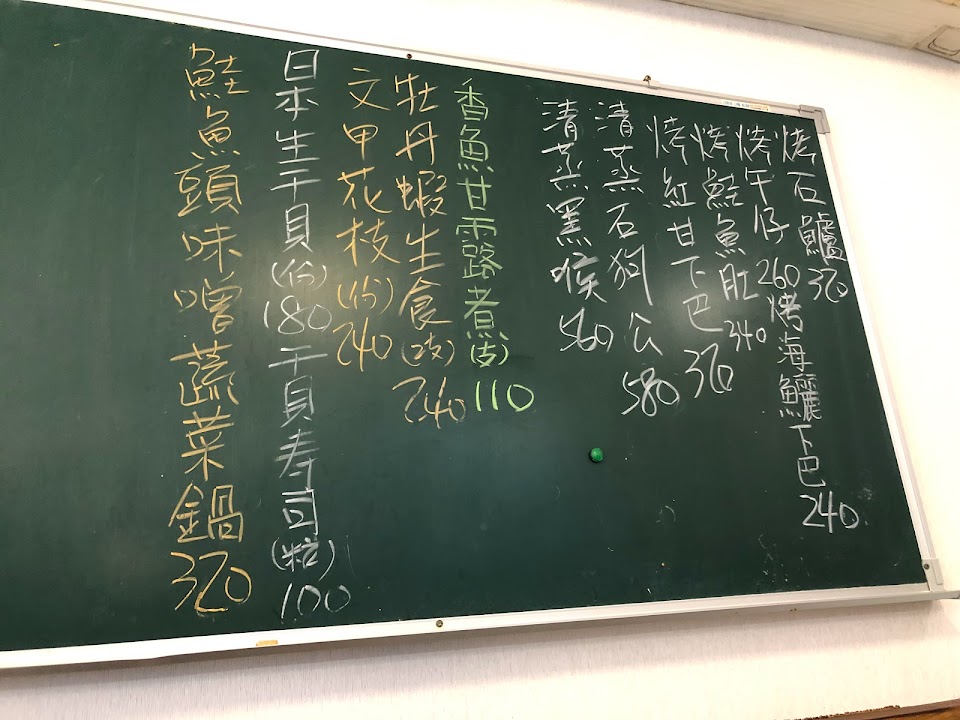 烤石鱸320
烤午仔260 烤海鱺下巴240
烤鮭魚肚340
烤紅甘下巴320
清蒸石狗公580
清蒸黑喉560
香魚甘露煮(支)110
牡丹蝦生食(2支)240
文甲花枝(份)240
日本生干貝(份)180 干貝寿司(粒)100
鮭魚頭味噌蔬菜鍋320